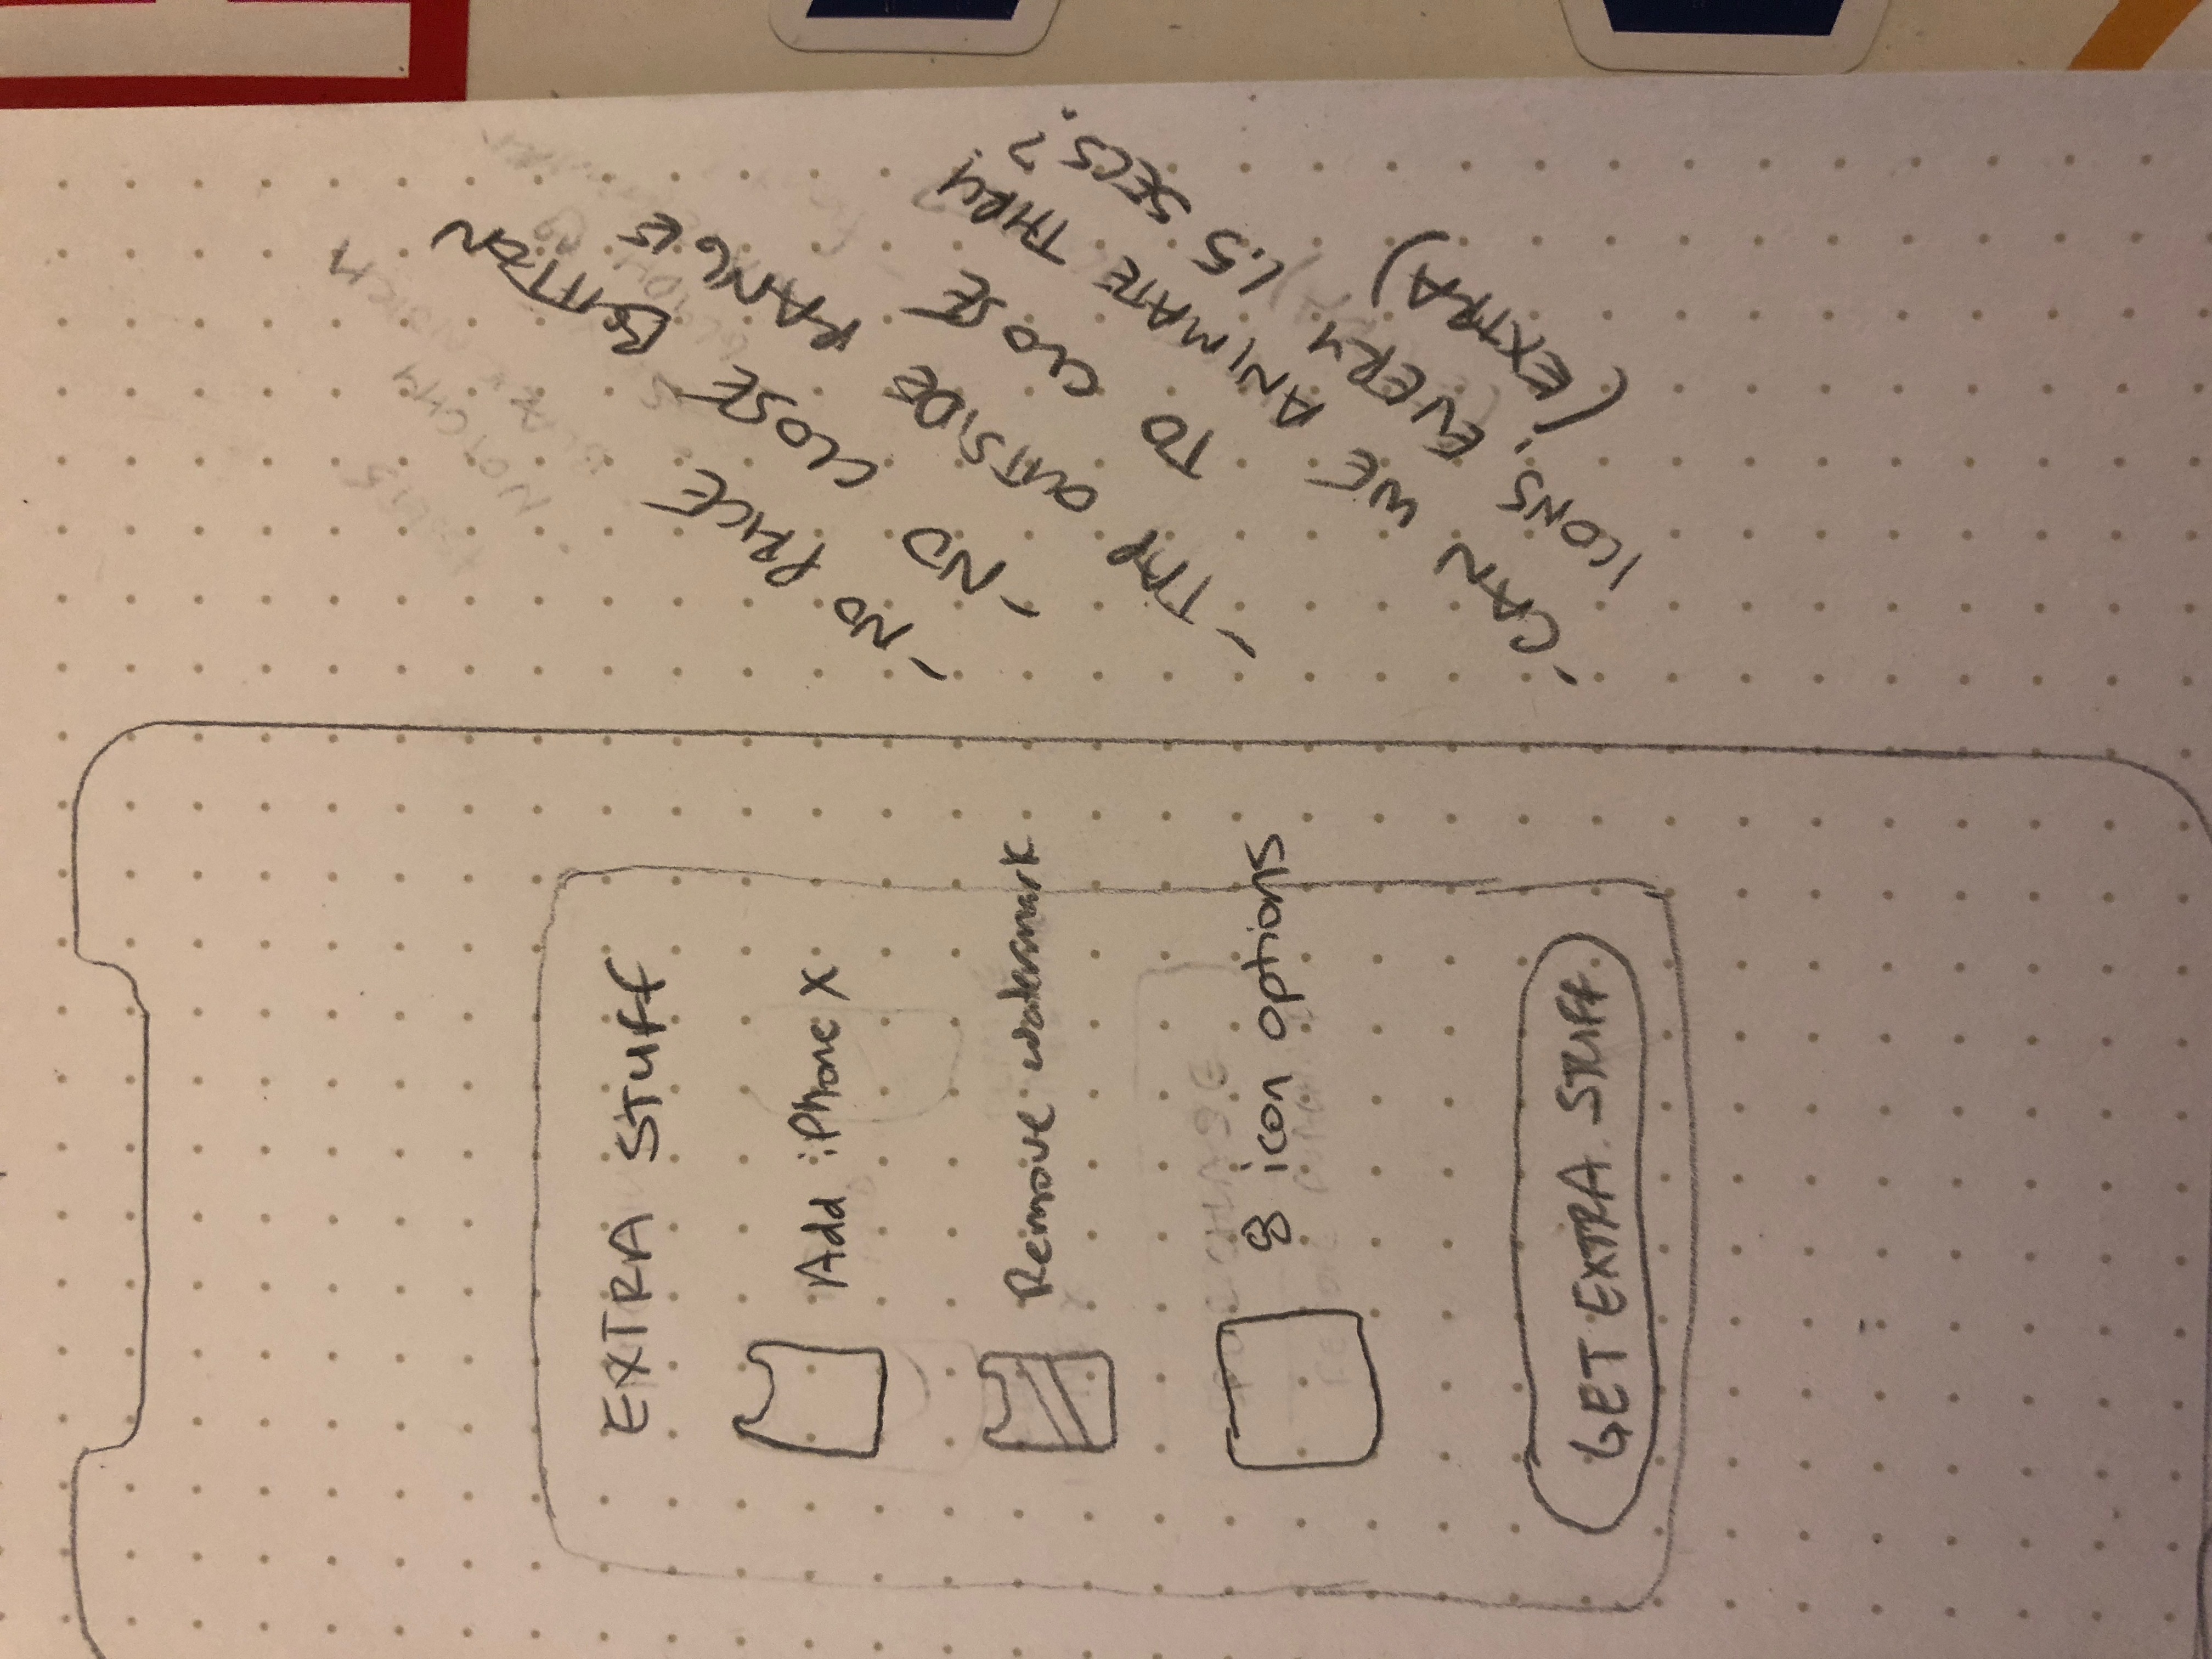 EXTRA STUFF
Add iPhone X
Remove watermark
8 icon options
GET EXTRA STUFF
- NO PRICE
- NO CLOSE BUTTON
- TAP OUTSIDE RANGE
TO CLOSE
- CAN WE ANIMATE THRU
ICONS, EVERY 1.5 SECS?
(EXTRA)
NOTCHY
PURCHASE